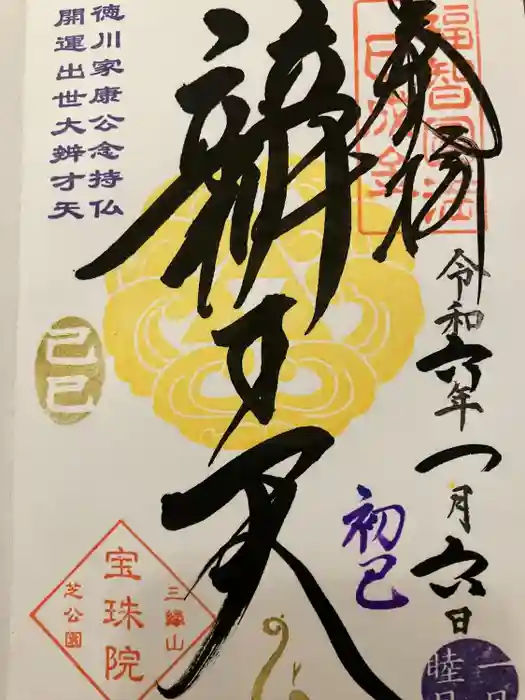 奉拝
福智円満
巳成金
令和六年一月六日
初巳
辨才天
徳川家康公念持仏
開運出世大辨才天
己巳
三縁山
宝珠院
芝公園
一月
睦月